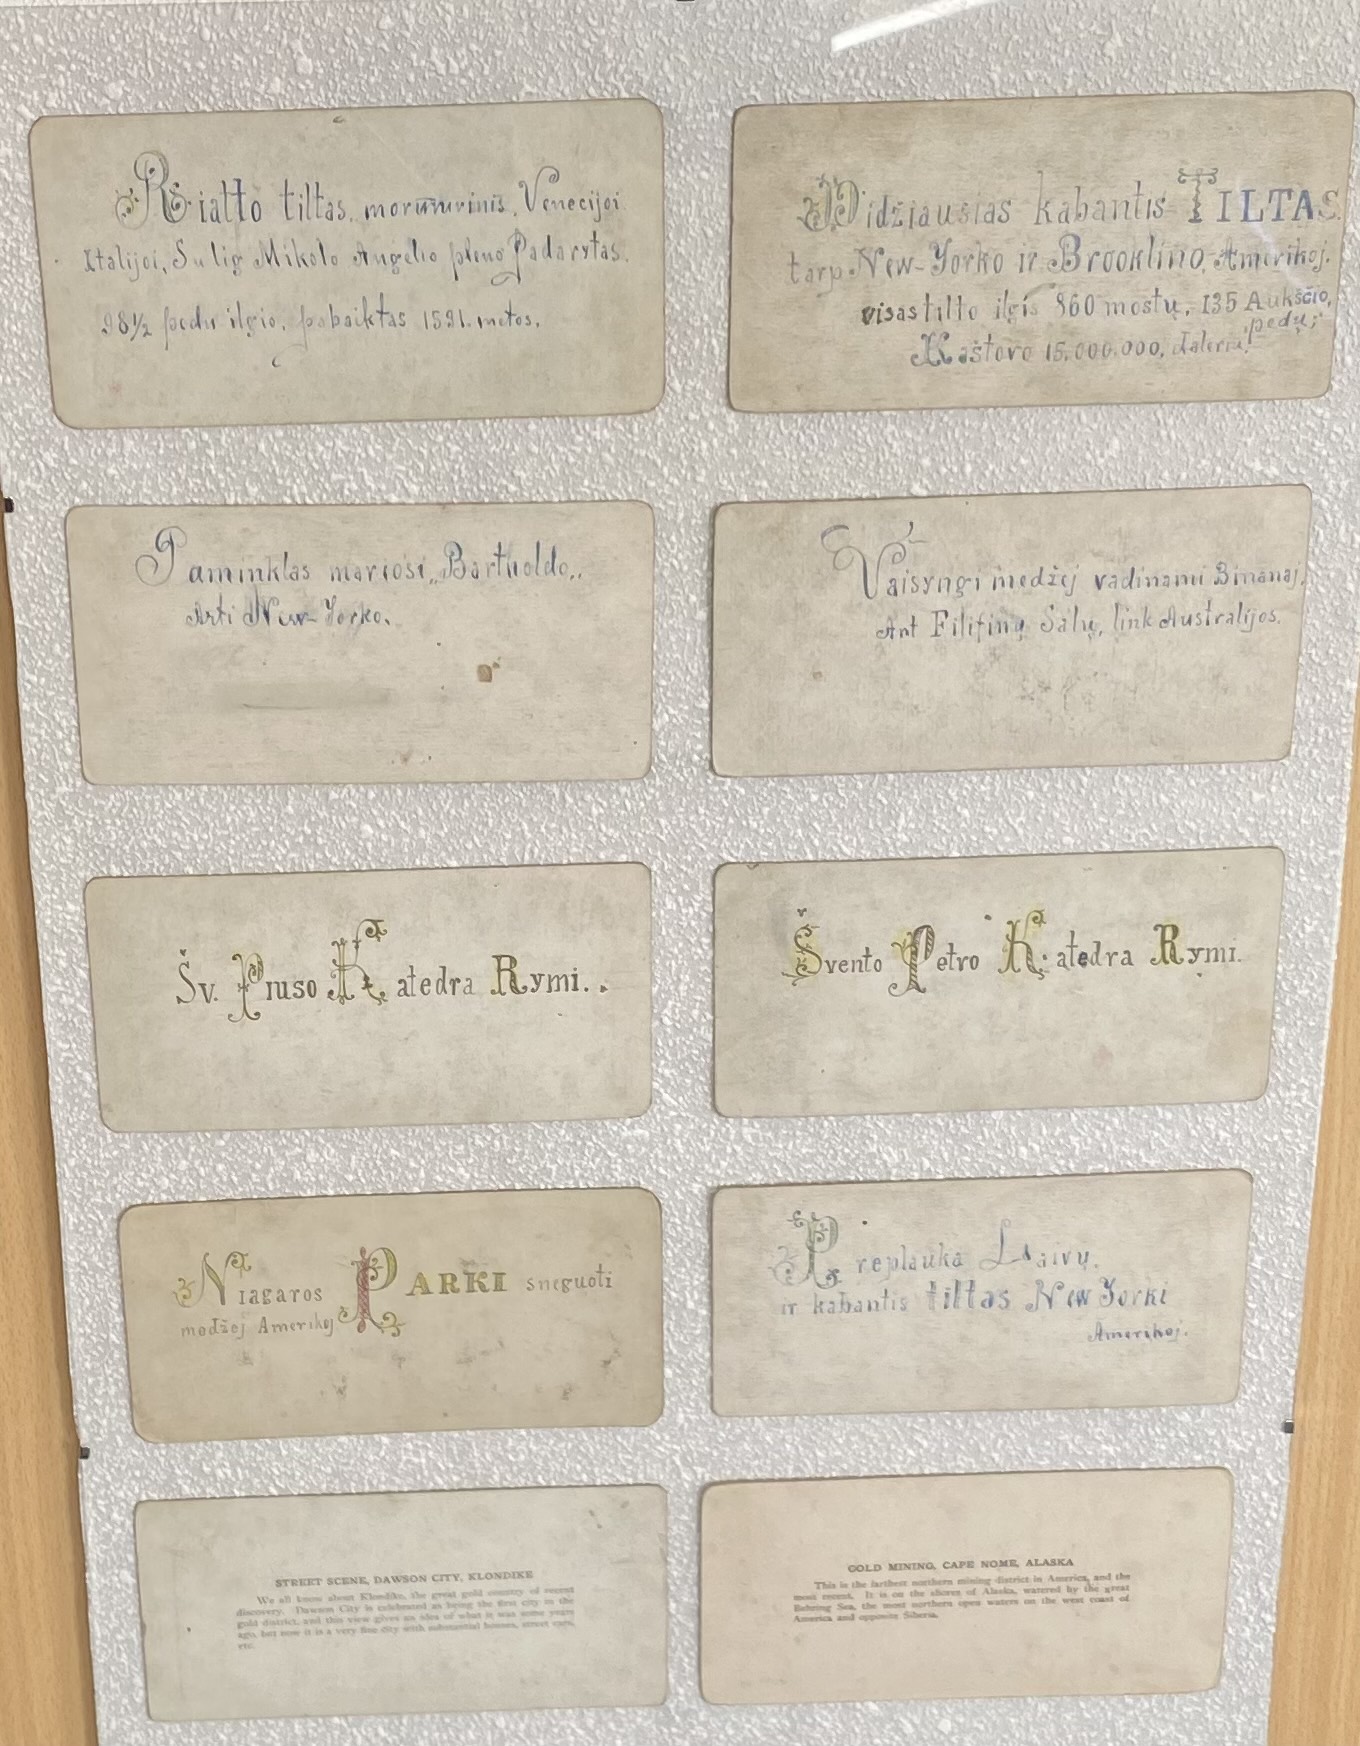 Rialto tiltas, morumurinis, Venecijoi.
Italijoi, Sulig Mikolo Angelio pleno Padarytas.
98½ pedu ilgio, pabaiktas 1591. metos.
Didžiausias kabantis TILTAS
tarp New-Yorko ir Brooklino, Amerikoj.
visas tilto ilgis 860 mostų, 135 Aukščio,
pedų;
Kaštovo 15,000,000, daleriu.
Paminklas mariosi „Bartholdo„
Arti New-Yorko.
Vaisyngi medžej vadinami Binanaj,
Ant Filipinų Salų, link Australijos.
Šv. Piuso Katedra Rymi.
Švento Petro Katedra Rymi.
Niagaros PARKI sneguoti
medžej Amerikoj
Preplauka Laivų,
ir kabantis tiltas New Yorki
Amerikoj.
STREET SCENE, DAWSON CITY, KLONDIKE
We all know about Klondike, the great gold country of recent
discovery. Dawson City is celebrated as being the first city in the
gold district, and this view gives an idea of what it was some years
ago, but now it is a very fine city with substantial houses, street cars,
etc.
GOLD MINING, CAPE NOME, ALASKA
This is the farthest northern mining district in America, and the
most recent. It is on the shores of Alaska, watered by the great
Behring Sea, the most northern open waters on the west coast of
America and opposite Siberia.